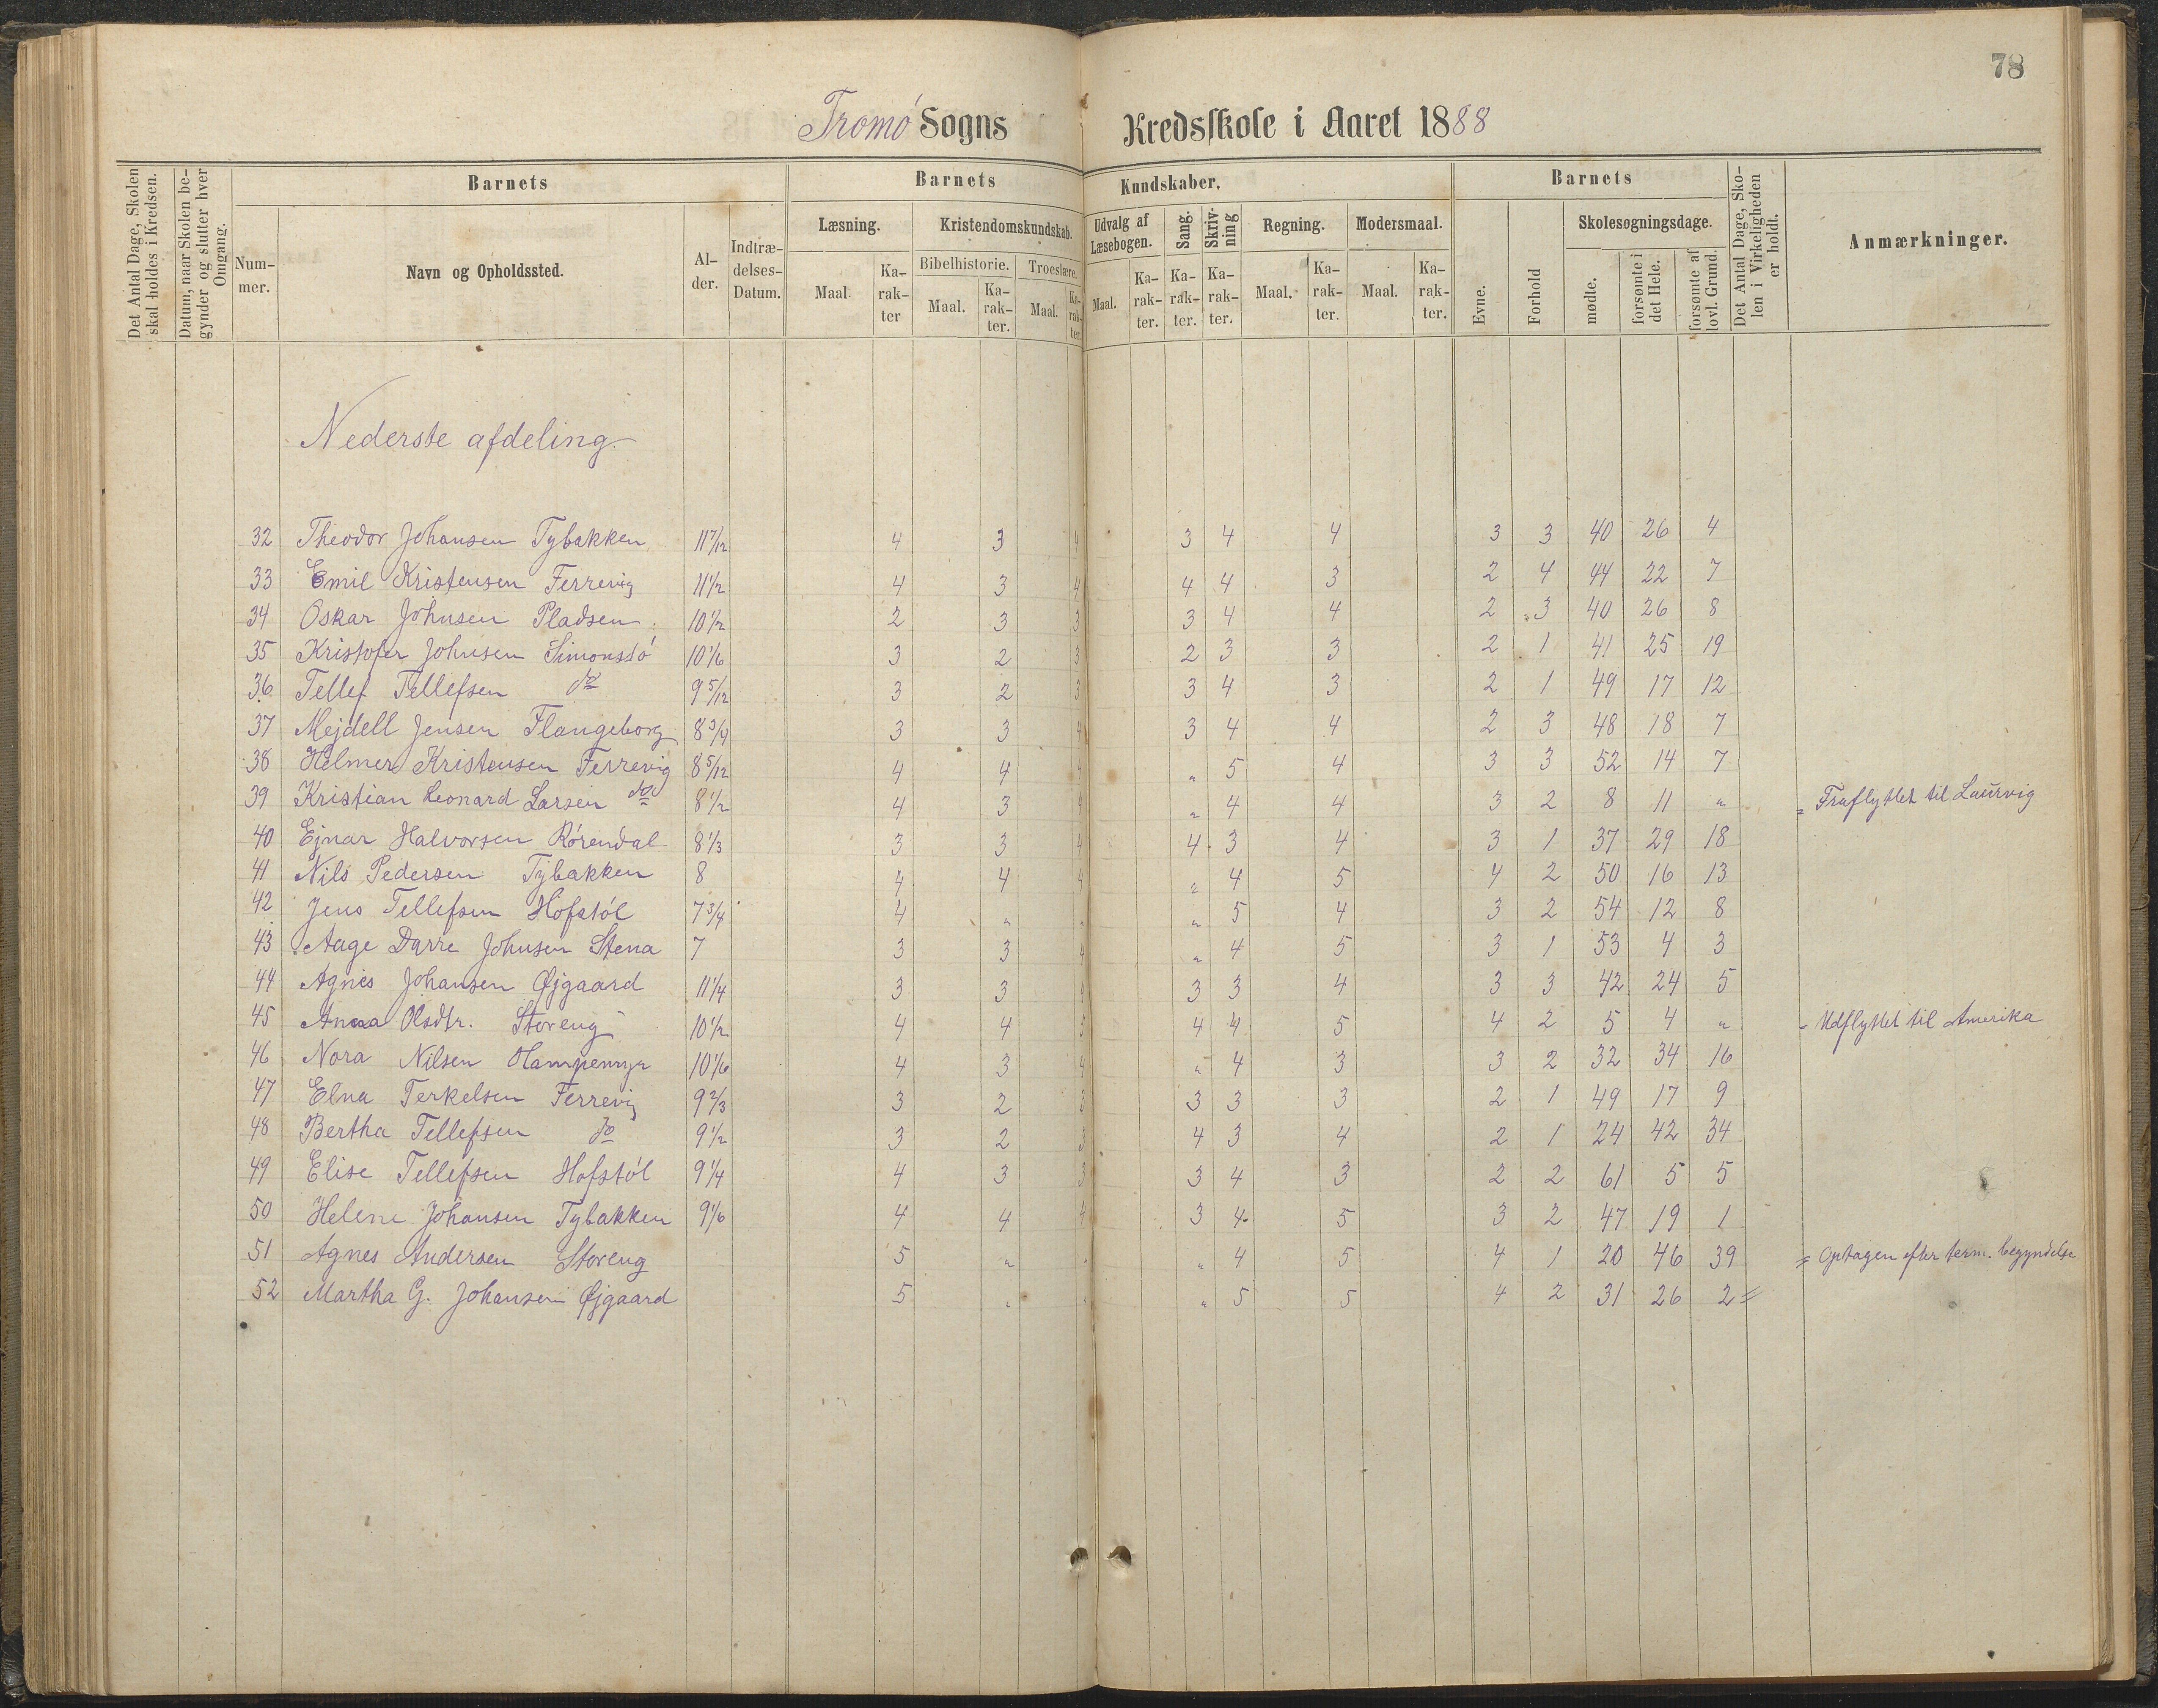 78
Tromø Sogns Kredsskole i Aaret 1888
Det Antal Dage, Skolen skal holdes i Kredsen.
Datum, naar Skolen begynder og slutter hver Omgang.
Barnets
Nummer.
Navn og Opholdssted.
Alder.
Indtrædelses-Datum.
Barnets Kundskaber.
Læsning.
Maal. Karakter
Kristendomskundskab.
Bibelhistorie.
Maal. Karakter.
Troeslære.
Maal. Karakter.
Udvalg af Læsebogen.
Maal. Karakter.
Sang.
Karakter.
Skrivning
Karakter.
Regning.
Maal. Karakter.
Modersmaal.
Maal. Karakter.
Barnets
Evne.
Forhold
Skolesøgningsdage.
mødte.
forsømte i det Hele.
forsømte af lovl. Grund.
Det Antal Dage, Skolen i Virkeligheden er holdt.
Anmærkninger.
Nederste afdeling
32 Theodor Johansen Tybakken 11 7/12 4 3 4 3 4 4 3 3 40 26 4
33 Emil Kristensen Ferrevig 11 1/2 4 3 4 4 4 3 2 4 44 22 7
34 Oskar Johnsen Pladsen 10 1/2 2 3 3 3 4 4 2 3 40 26 8
35 Kristofer Johnsen Simonstø 10 1/6 3 2 3 2 3 3 2 1 41 25 19
36 Tellef Tellefsen do 9 5/12 3 2 3 3 4 3 2 1 49 17 12
37 Mejdell Jensen Flangeborg 8 3/4 3 3 4 3 4 4 2 3 48 18 7
38 Helmer Kristensen Ferrevig 8 5/12 4 4 4 " 5 4 3 3 52 14 7
39 Kristian Leonard Larsen do 8 1/2 4 3 4 " 4 4 3 2 8 11 " = Fraflyttet til Laurvig
40 Ejnar Halvorsen Rørendal 8 1/3 3 3 4 4 3 4 3 1 37 29 18
41 Nils Pedersen Tybakken 8 4 4 4 " 4 5 4 2 50 16 13
42 Jens Tellefsen Hofstøl 7 3/4 4 " " " 5 4 3 2 54 12 8
43 Aage Darre Johnsen Stena 7 3 3 4 " 4 5 3 1 53 4 3
44 Agnes Johansen Øjgaard 11 1/4 3 3 4 3 3 4 3 3 42 24 5
45 Anna Olsdtr. Storeng 10 1/2 4 4 5 4 4 5 4 2 5 4 " - Udflyttet til Amerika
46 Nora Nilsen Hampemyr 10 1/6 4 3 4 " 4 3 3 2 32 34 16
47 Elna Terkelsen Ferrevig 9 2/3 3 2 3 3 3 3 2 1 49 17 9
48 Bertha Tellefsen do 9 1/2 3 2 3 4 3 4 2 1 24 42 34
49 Elise Tellefsen Hofstøl 9 1/4 4 3 3 3 4 3 2 2 61 5 5
50 Helene Johansen Tybakken 9 1/6 4 4 4 3 4 5 3 2 47 19 1
51 Agnes Andersen Storeng 5 " " " 4 5 4 1 20 46 39 = Optagen efter term. begyndelse
52 Martha G. Johansen Øjgaard 5 " " " 5 5 4 2 31 26 2 =